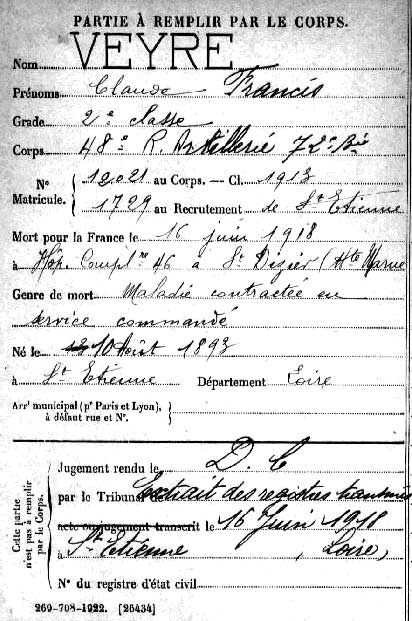 PARTIE À REMPLIR PAR LE CORPS.
Nom VEYRE
Prénoms Claude Francis
Grade 2e classe
Corps 48e R. Artillerie 72e Bie
N° Matricule. { 12021 au Corps. — Cl. 1913
1729 au Recrutement de St Etienne
Mort pour la France le 16 juin 1918
à Hôp. Compl re 46 à St Dizier (Hte Marne
Genre de mort Maladie contractée en
service commandé
Né le 10 Août 1893
à St Etienne Département Loire
Arrt municipal (pr Paris et Lyon),
à défaut rue et N°.
Cette partie n'est pas à remplir par le Corps.
Jugement rendu le D. C
par le Tribunal de Extrait des registres transmis
acte ou jugement transcrit le 16 Juin 1918
à St Etienne (Loire)
N° du registre d'état civil
269-708-1922. [26434]